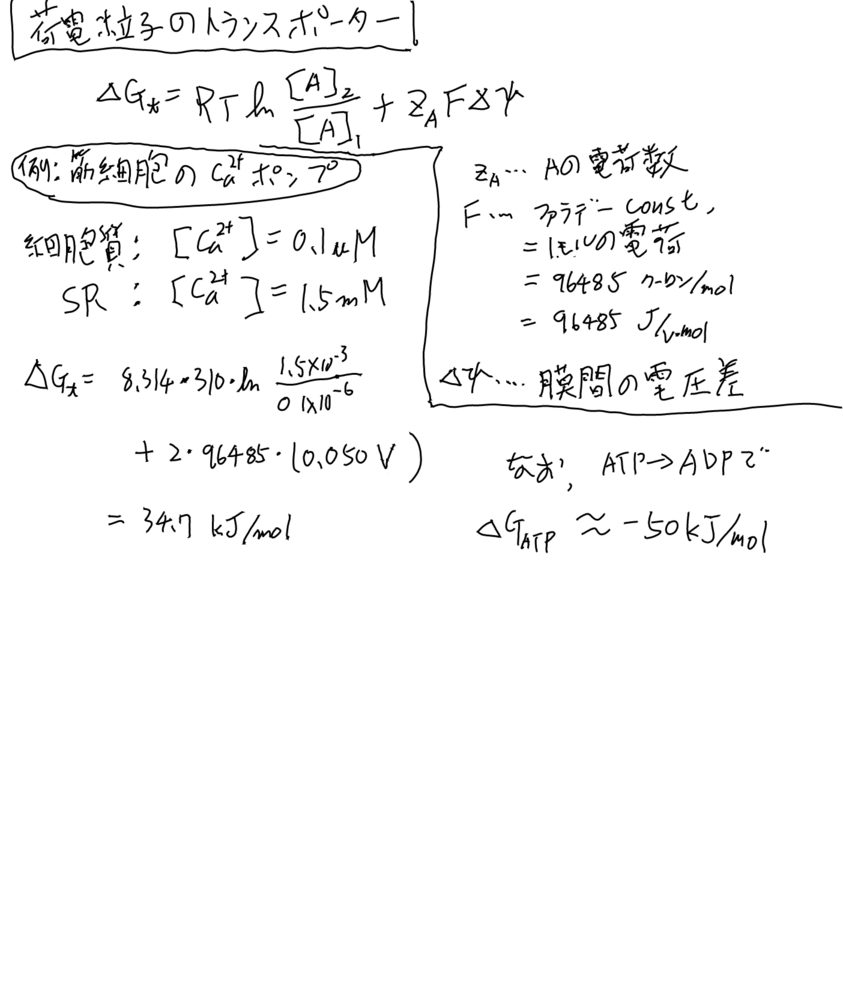 荷電粒子のトランスポーター
ΔG_t = RT ln [A]₂/[A]₁ + Z_A FΔψ
例: 筋細胞の Ca²⁺ ポンプ
細胞質: [Ca²⁺] = 0.1μM
SR : [Ca²⁺] = 1.5mM
ΔG_t = 8.314・310・ln 1.5×10⁻³/0.1×10⁻⁶
+ 2・96485・(0.050V)
= 34.7 kJ/mol
Z_A… Aの電荷数
F… ファラデー const,
= 1モルの電荷
= 96485 クーロン/mol
= 96485 J/V・mol
Δψ…. 膜間の電圧差
なお, ATP→ADPで
ΔG_ATP ≈ -50kJ/mol